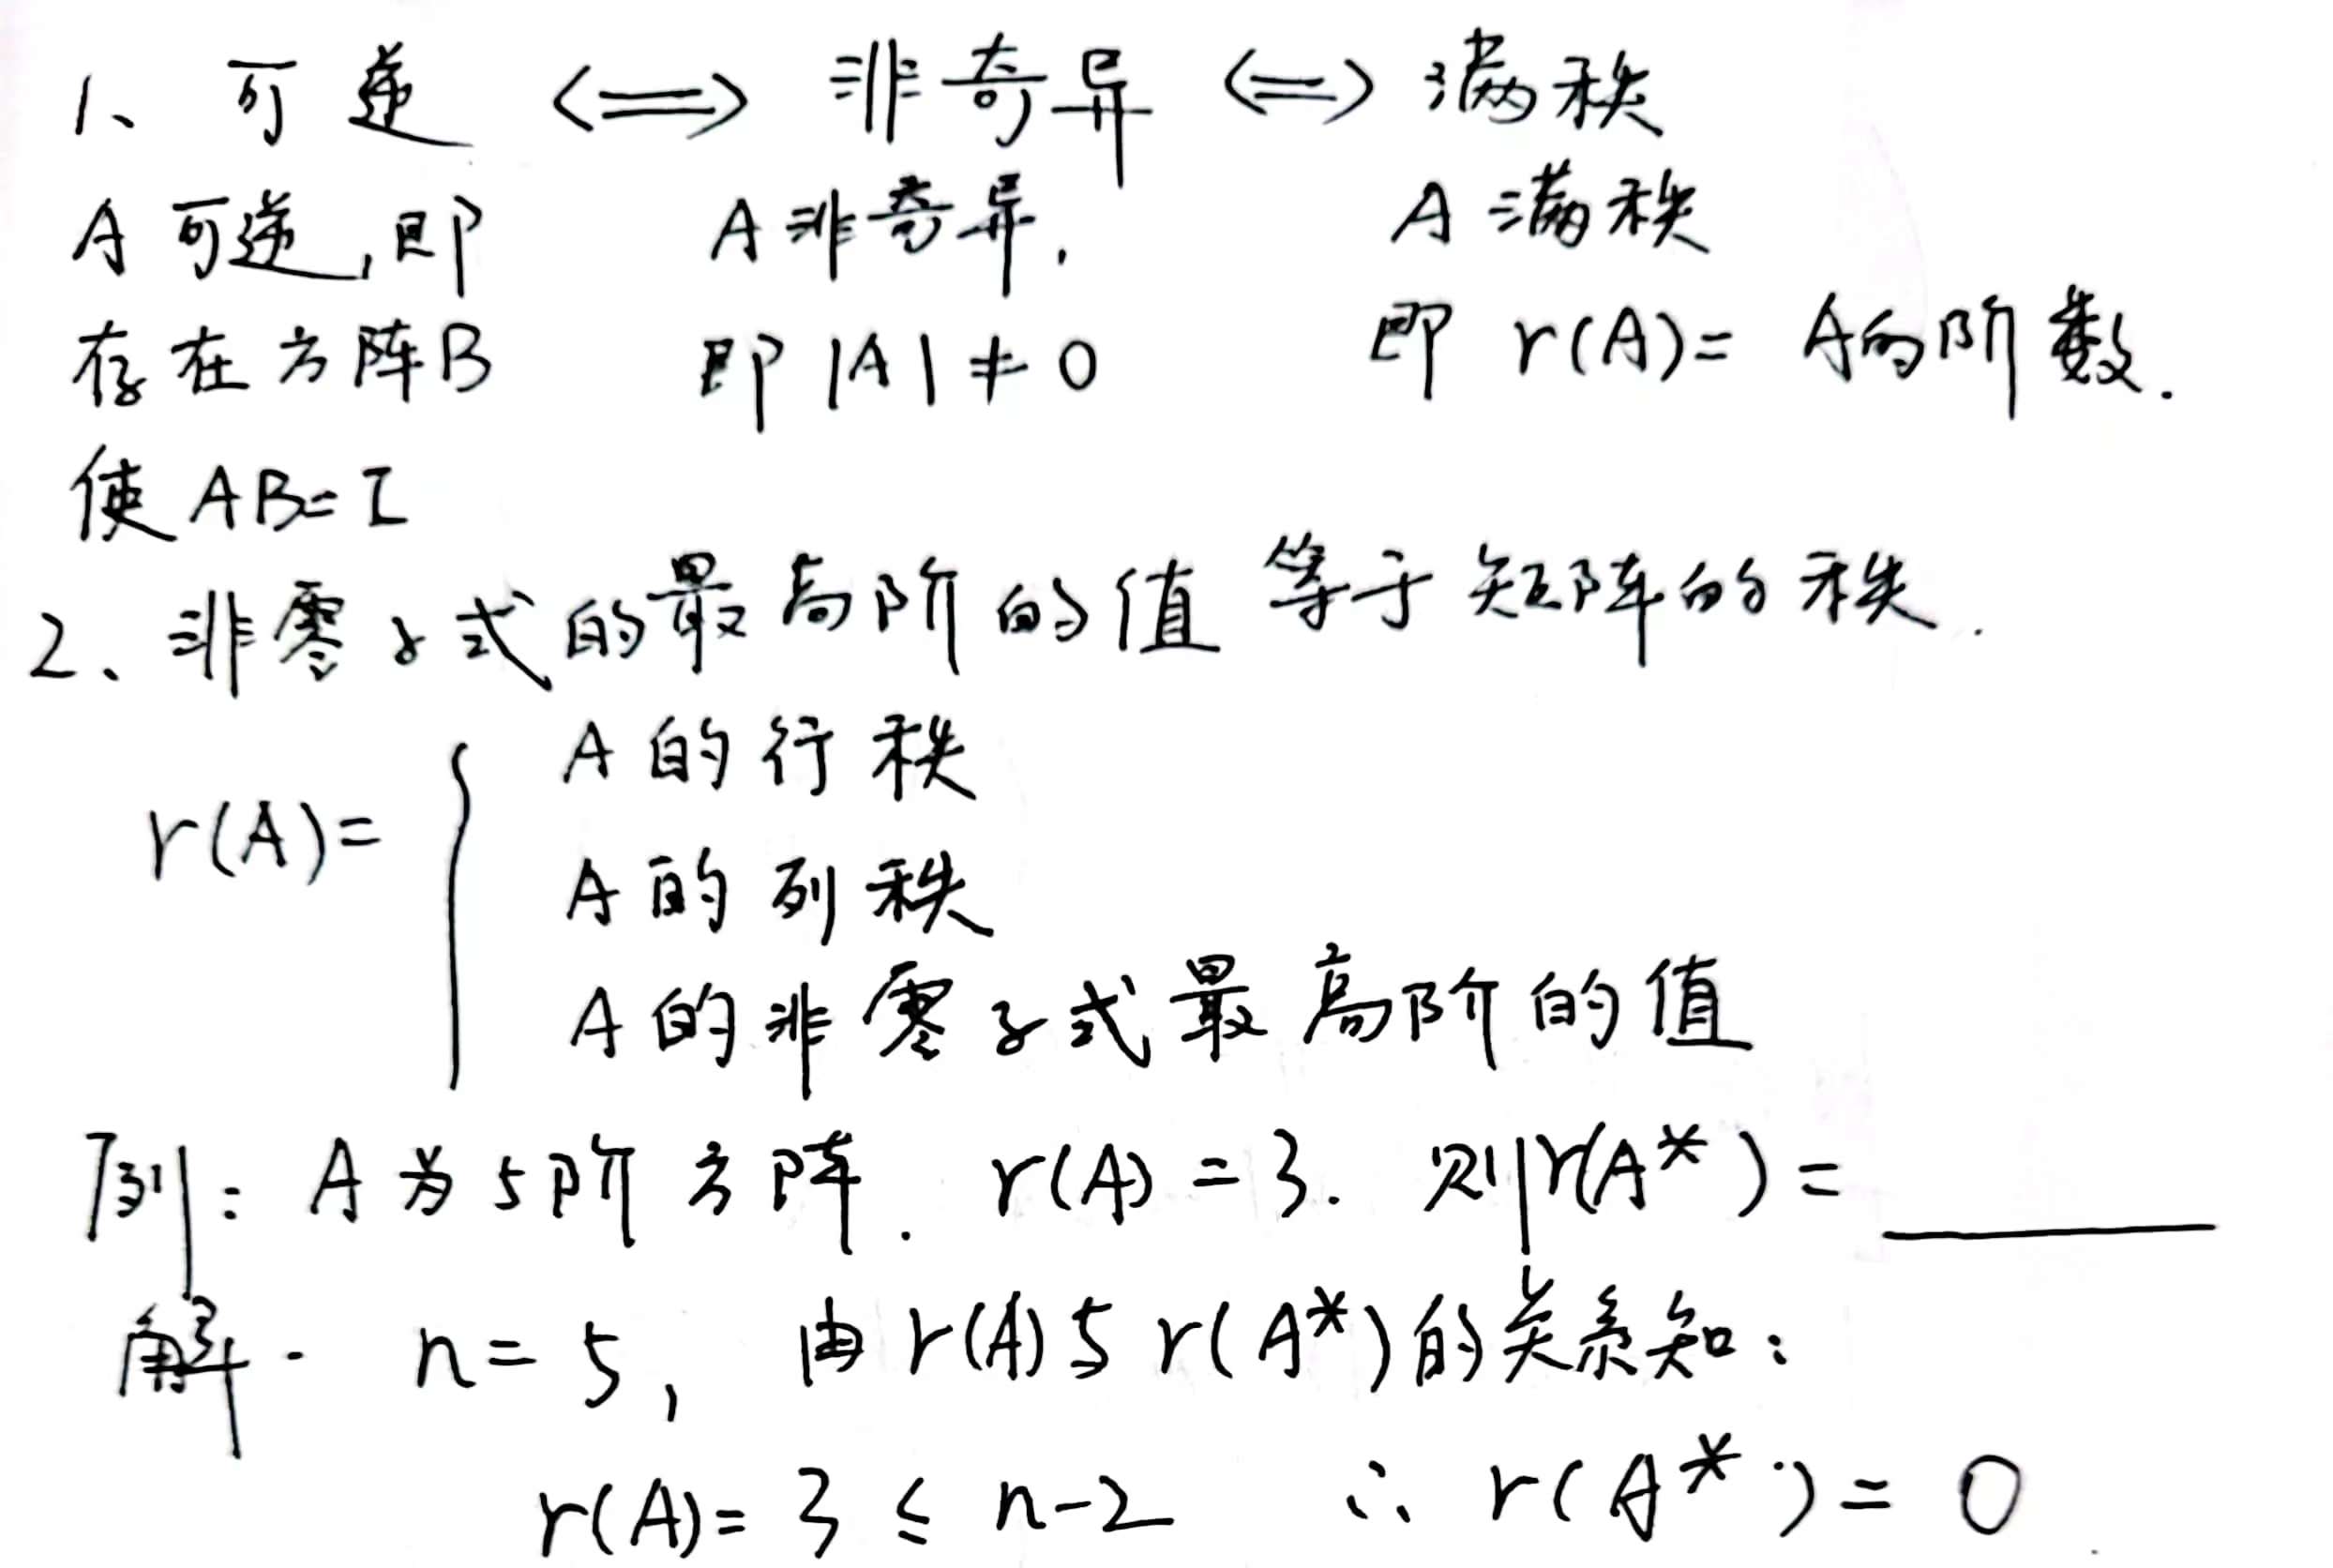 1、可逆 <=> 非奇异 <=> 满秩
A可逆,即 A非奇异, A满秩
存在方阵B 即 |A| ≠ 0 即 r(A)= A的阶数.
使 AB=I
2、非零子式的最高阶的值等于矩阵的秩.
A的行秩
r(A)= {
A的列秩
A的非零子式最高阶的值
例: A为5阶方阵. r(A)=3. 则r(A*)=______
解. n=5, 由r(A)与r(A*)的关系知:
r(A)=3 ≤ n-2 ∴ r(A*)=0